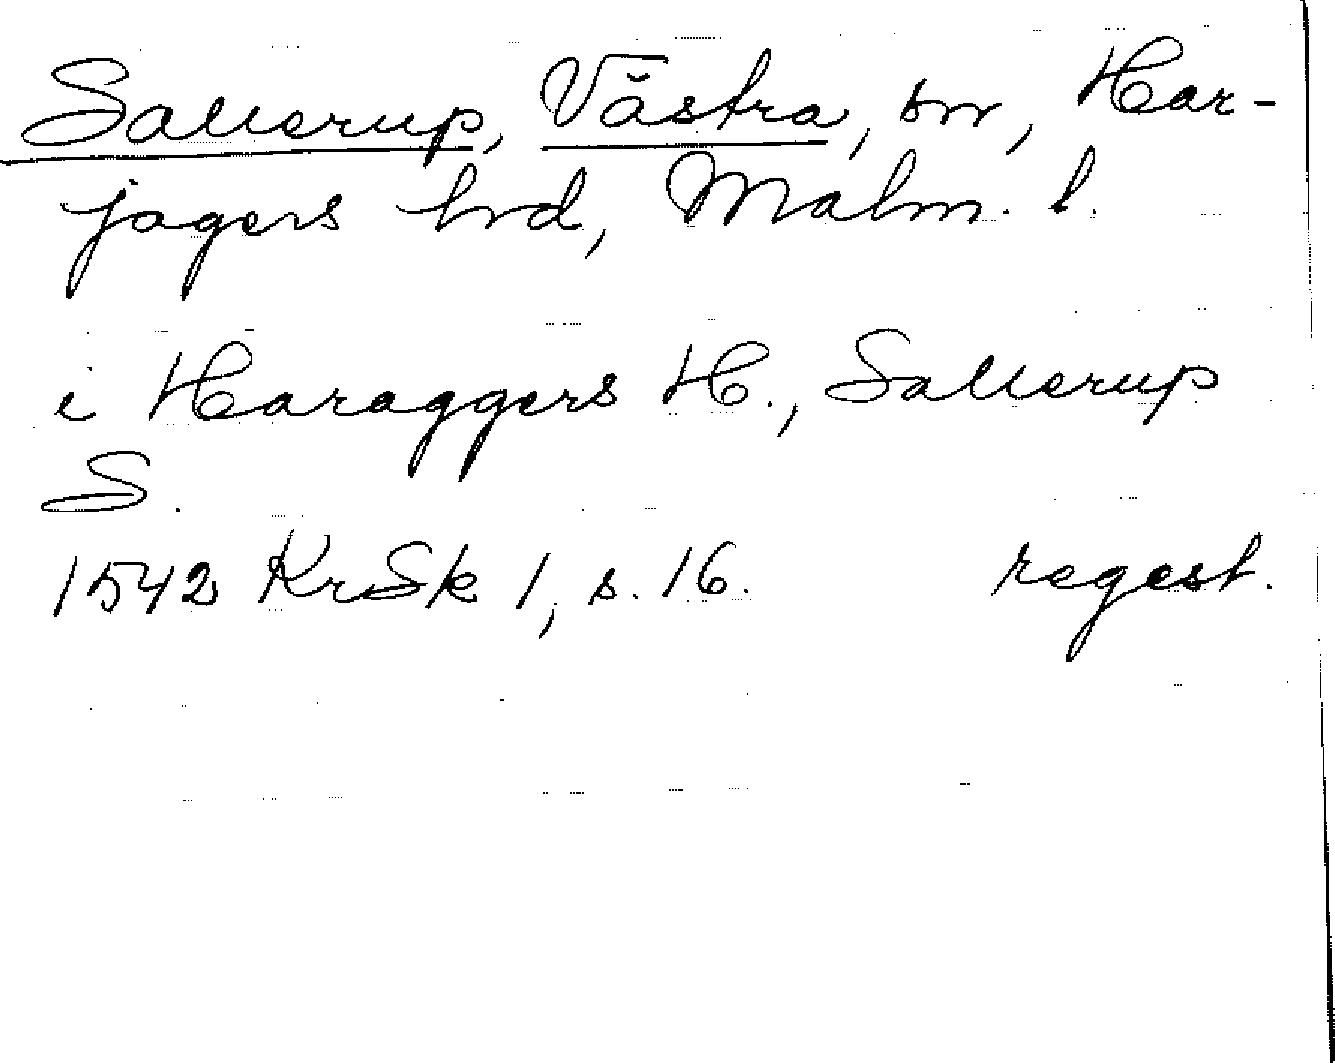 Sallerup, Västra, sn, Har-
jagers hrd, Malm. l.
i Haraggers H., Sallerup
S.
1542 KrSk 1, s. 16. regest.